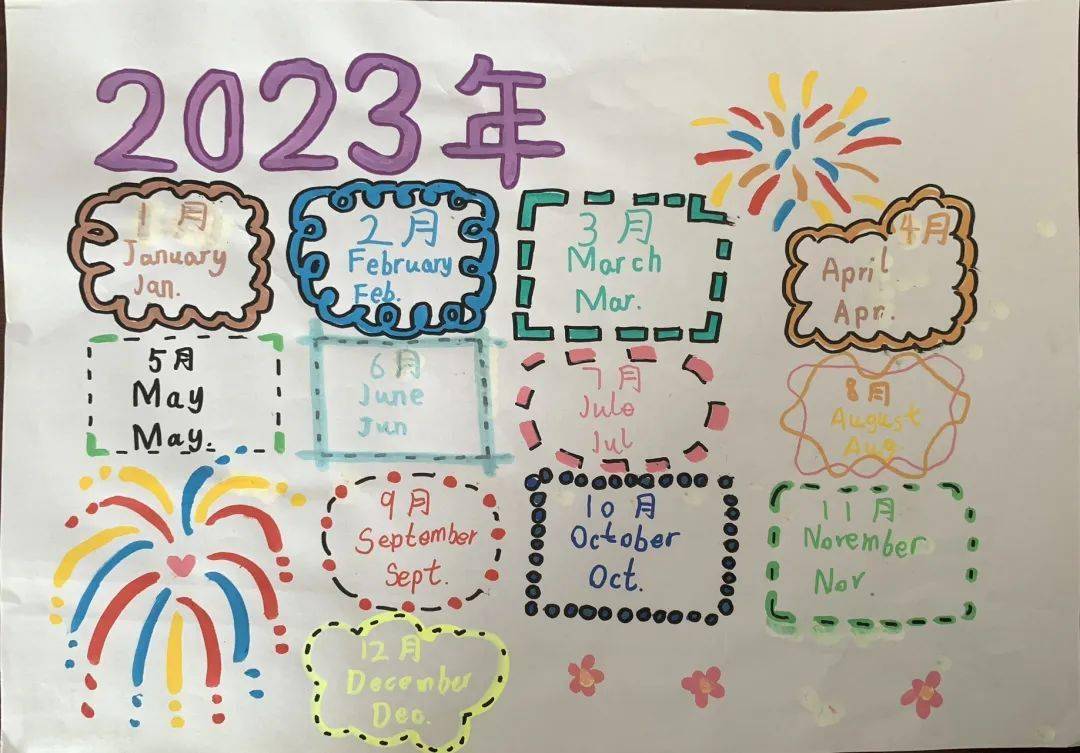 2023年
1月
January
Jan.
2月
February
Feb.
3月
March
Mar.
4月
April
Apr.
5月
May
May.
6月
June
Jun
7月
Julo
Jul
8月
August
Aug
9月
September
Sept.
10月
October
Oct.
11月
November
Nov.
12月
December
Dec.